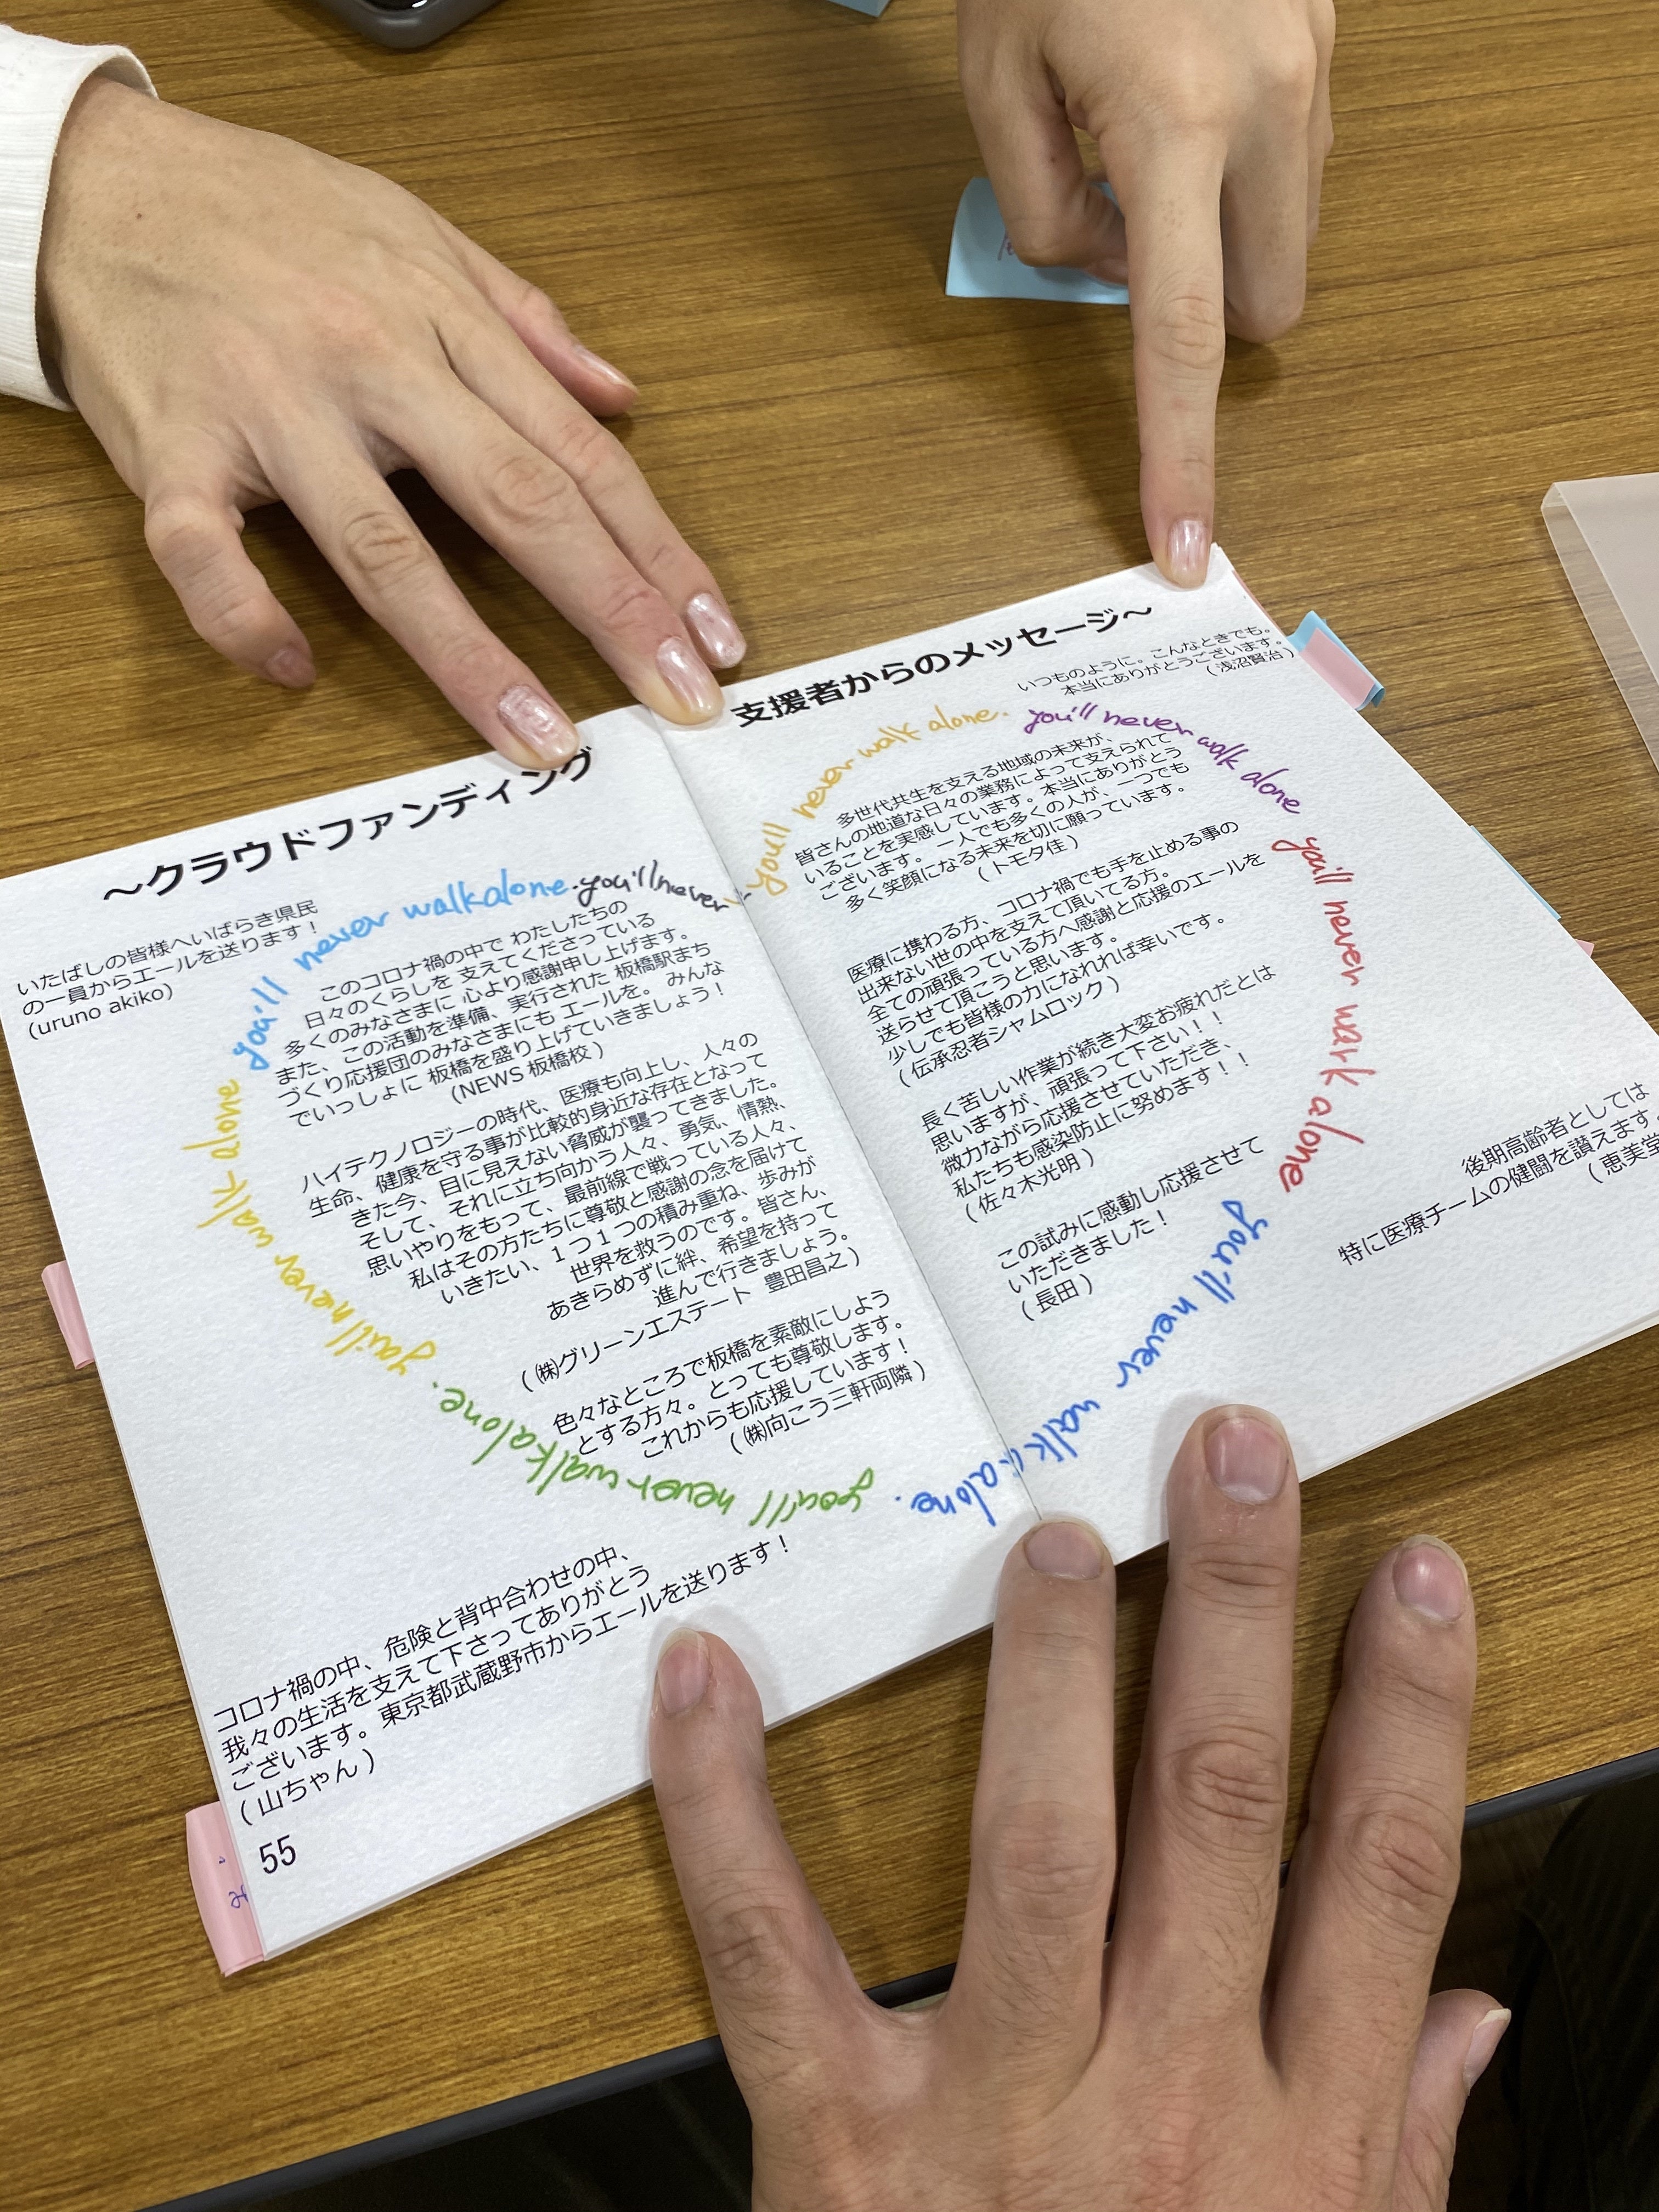 ～クラウドファンディング
いたばしの皆様へいばらき県民
の一員からエールを送ります！
(uruno akiko)
you'll never walk alone.
you'll never
このコロナ禍の中で わたしたちの
日々のくらしを 支えてくださっている
多くのみなさまに 心より感謝申し上げます。
また、この活動を準備、実行された 板橋駅まち
づくり応援団のみなさまにも エールを。 みんな
でいっしょに 板橋を盛り上げていきましょう！
(NEWS 板橋校)
ハイテクノロジーの時代、医療も向上し、人々の
生命、健康を守る事が比較的身近な存在となって
きた今、目に見えない脅威が襲ってきました。
そして、それに立ち向かう人々、勇気、情熱、
思いやりをもって、最前線で戦っている人々、
私はその方たちに尊敬と感謝の念を届けて
いきたい、１つ１つの積み重ね、歩みが
世界を救うのです。皆さん、
あきらめずに絆、希望を持って
進んで行きましょう。
(㈱グリーンエステート 豊田昌之)
色々なところで板橋を素敵にしよう
とする方々。とっても尊敬します。
これからも応援しています！
(㈱向こう三軒両隣)
you'll never walk alone
you'll never walk alone.
コロナ禍の中、危険と背中合わせの中、
我々の生活を支えて下さってありがとう
ございます。東京都武蔵野市からエールを送ります！
(山ちゃん)
55
支援者からのメッセージ～
いつものように。こんなときでも。
本当にありがとうございます。
(浅沼賢治)
you'll never walk alone.
you'll never walk alone
多世代共生を支える地域の未来が、
皆さんの地道な日々の業務によって支えられて
いることを実感しています。本当にありがとう
ございます。一人でも多くの人が、一つでも
多く笑顔になる未来を切に願っています。
(トモタ佳)
医療に携わる方、コロナ禍でも手を止める事の
出来ない世の中を支えて頂いてる方。
全ての頑張っている方へ感謝と応援のエールを
送らせて頂こうと思います。
少しでも皆様の力になれれば幸いです。
(伝承忍者シャムロック)
長く苦しい作業が続き大変お疲れだとは
思いますが、頑張って下さい！！
微力ながら応援させていただき、
私たちも感染防止に努めます！！
(佐々木光明)
この試みに感動し応援させて
いただきました！
(長田)
you'll never walk alone
you'll never walk alone.
後期高齢者としては
特に医療チームの健闘を讃えます。
(恵美堂